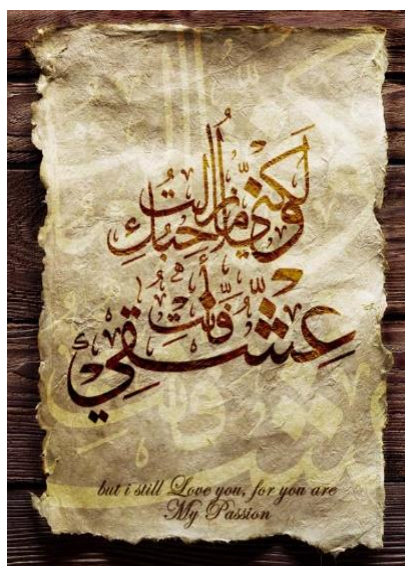 لكني مازلت
أحبك
فأنت
عشقي
but i still Love you, for you are
My Passion